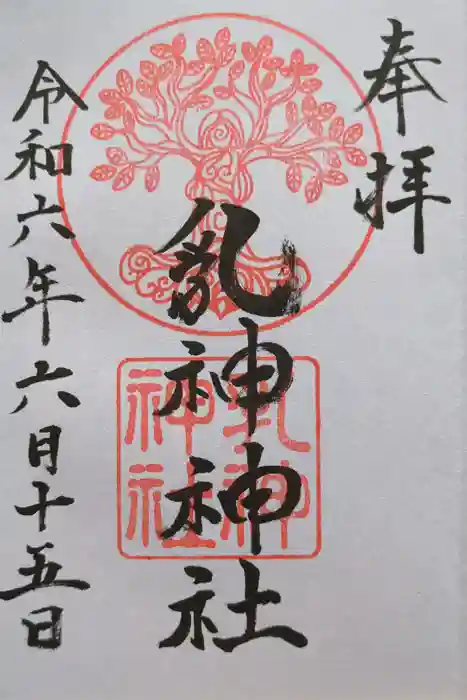 奉拝
乳神神社
乳神
神社
令和六年六月十五日